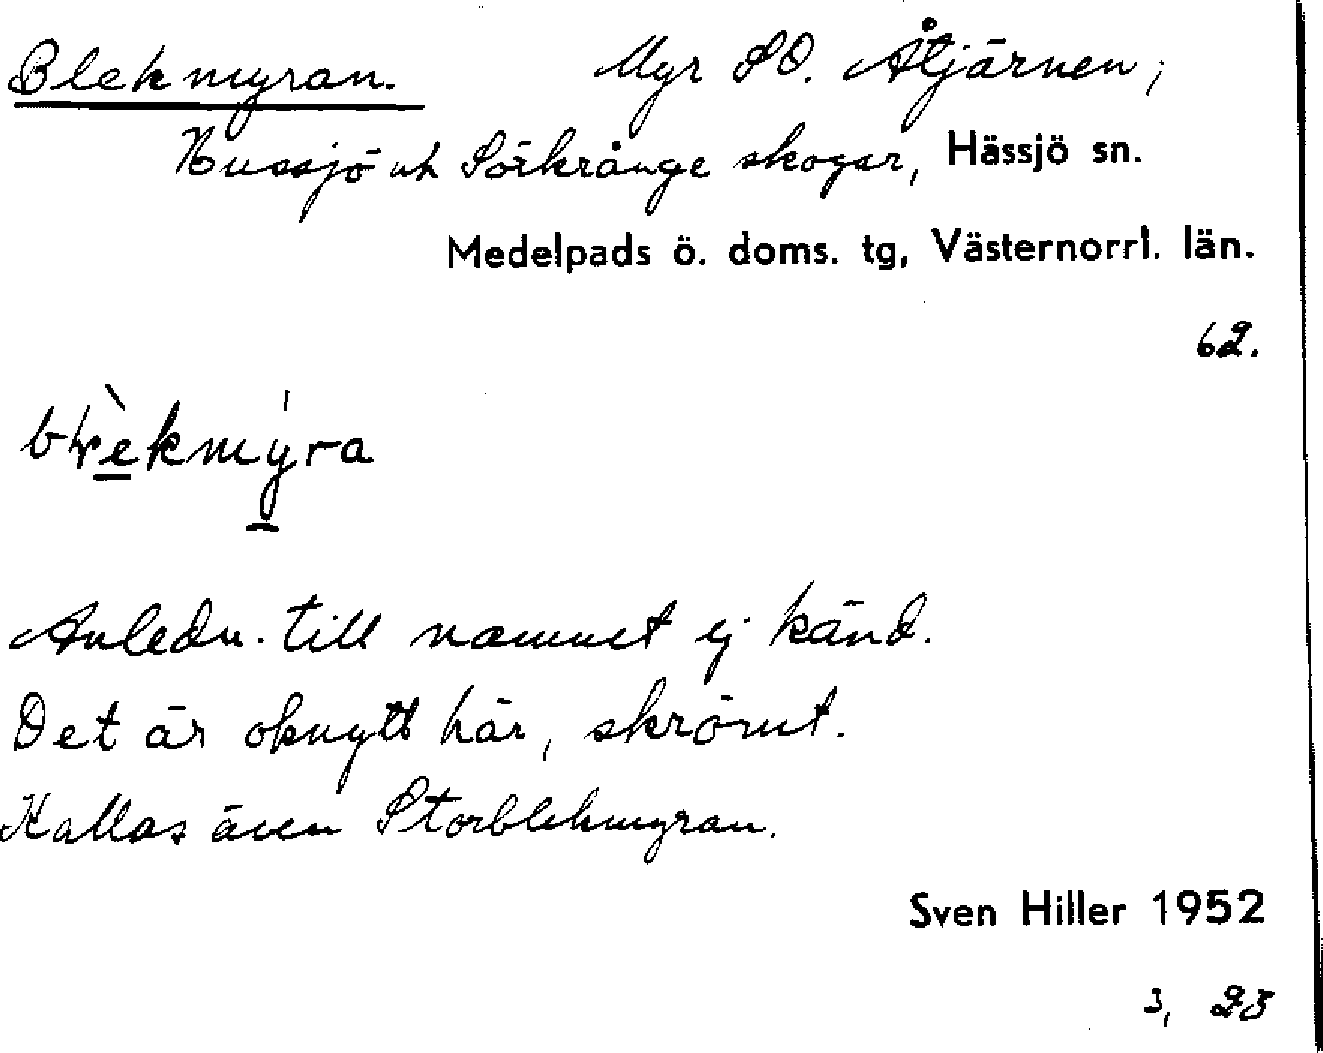 Blekmyran. Myr SO. Åtjärnen;
Hussjö uh Sörkrånge skogar, Hässjö sn.
Medelpads ö. doms. tg, Västernorrl. län.
62.
Anledn. till namnet ej känd.
Det är oknytt här, skrömt.
Kallas även Storblekmyran.
Sven Hiller 1952
3, 25